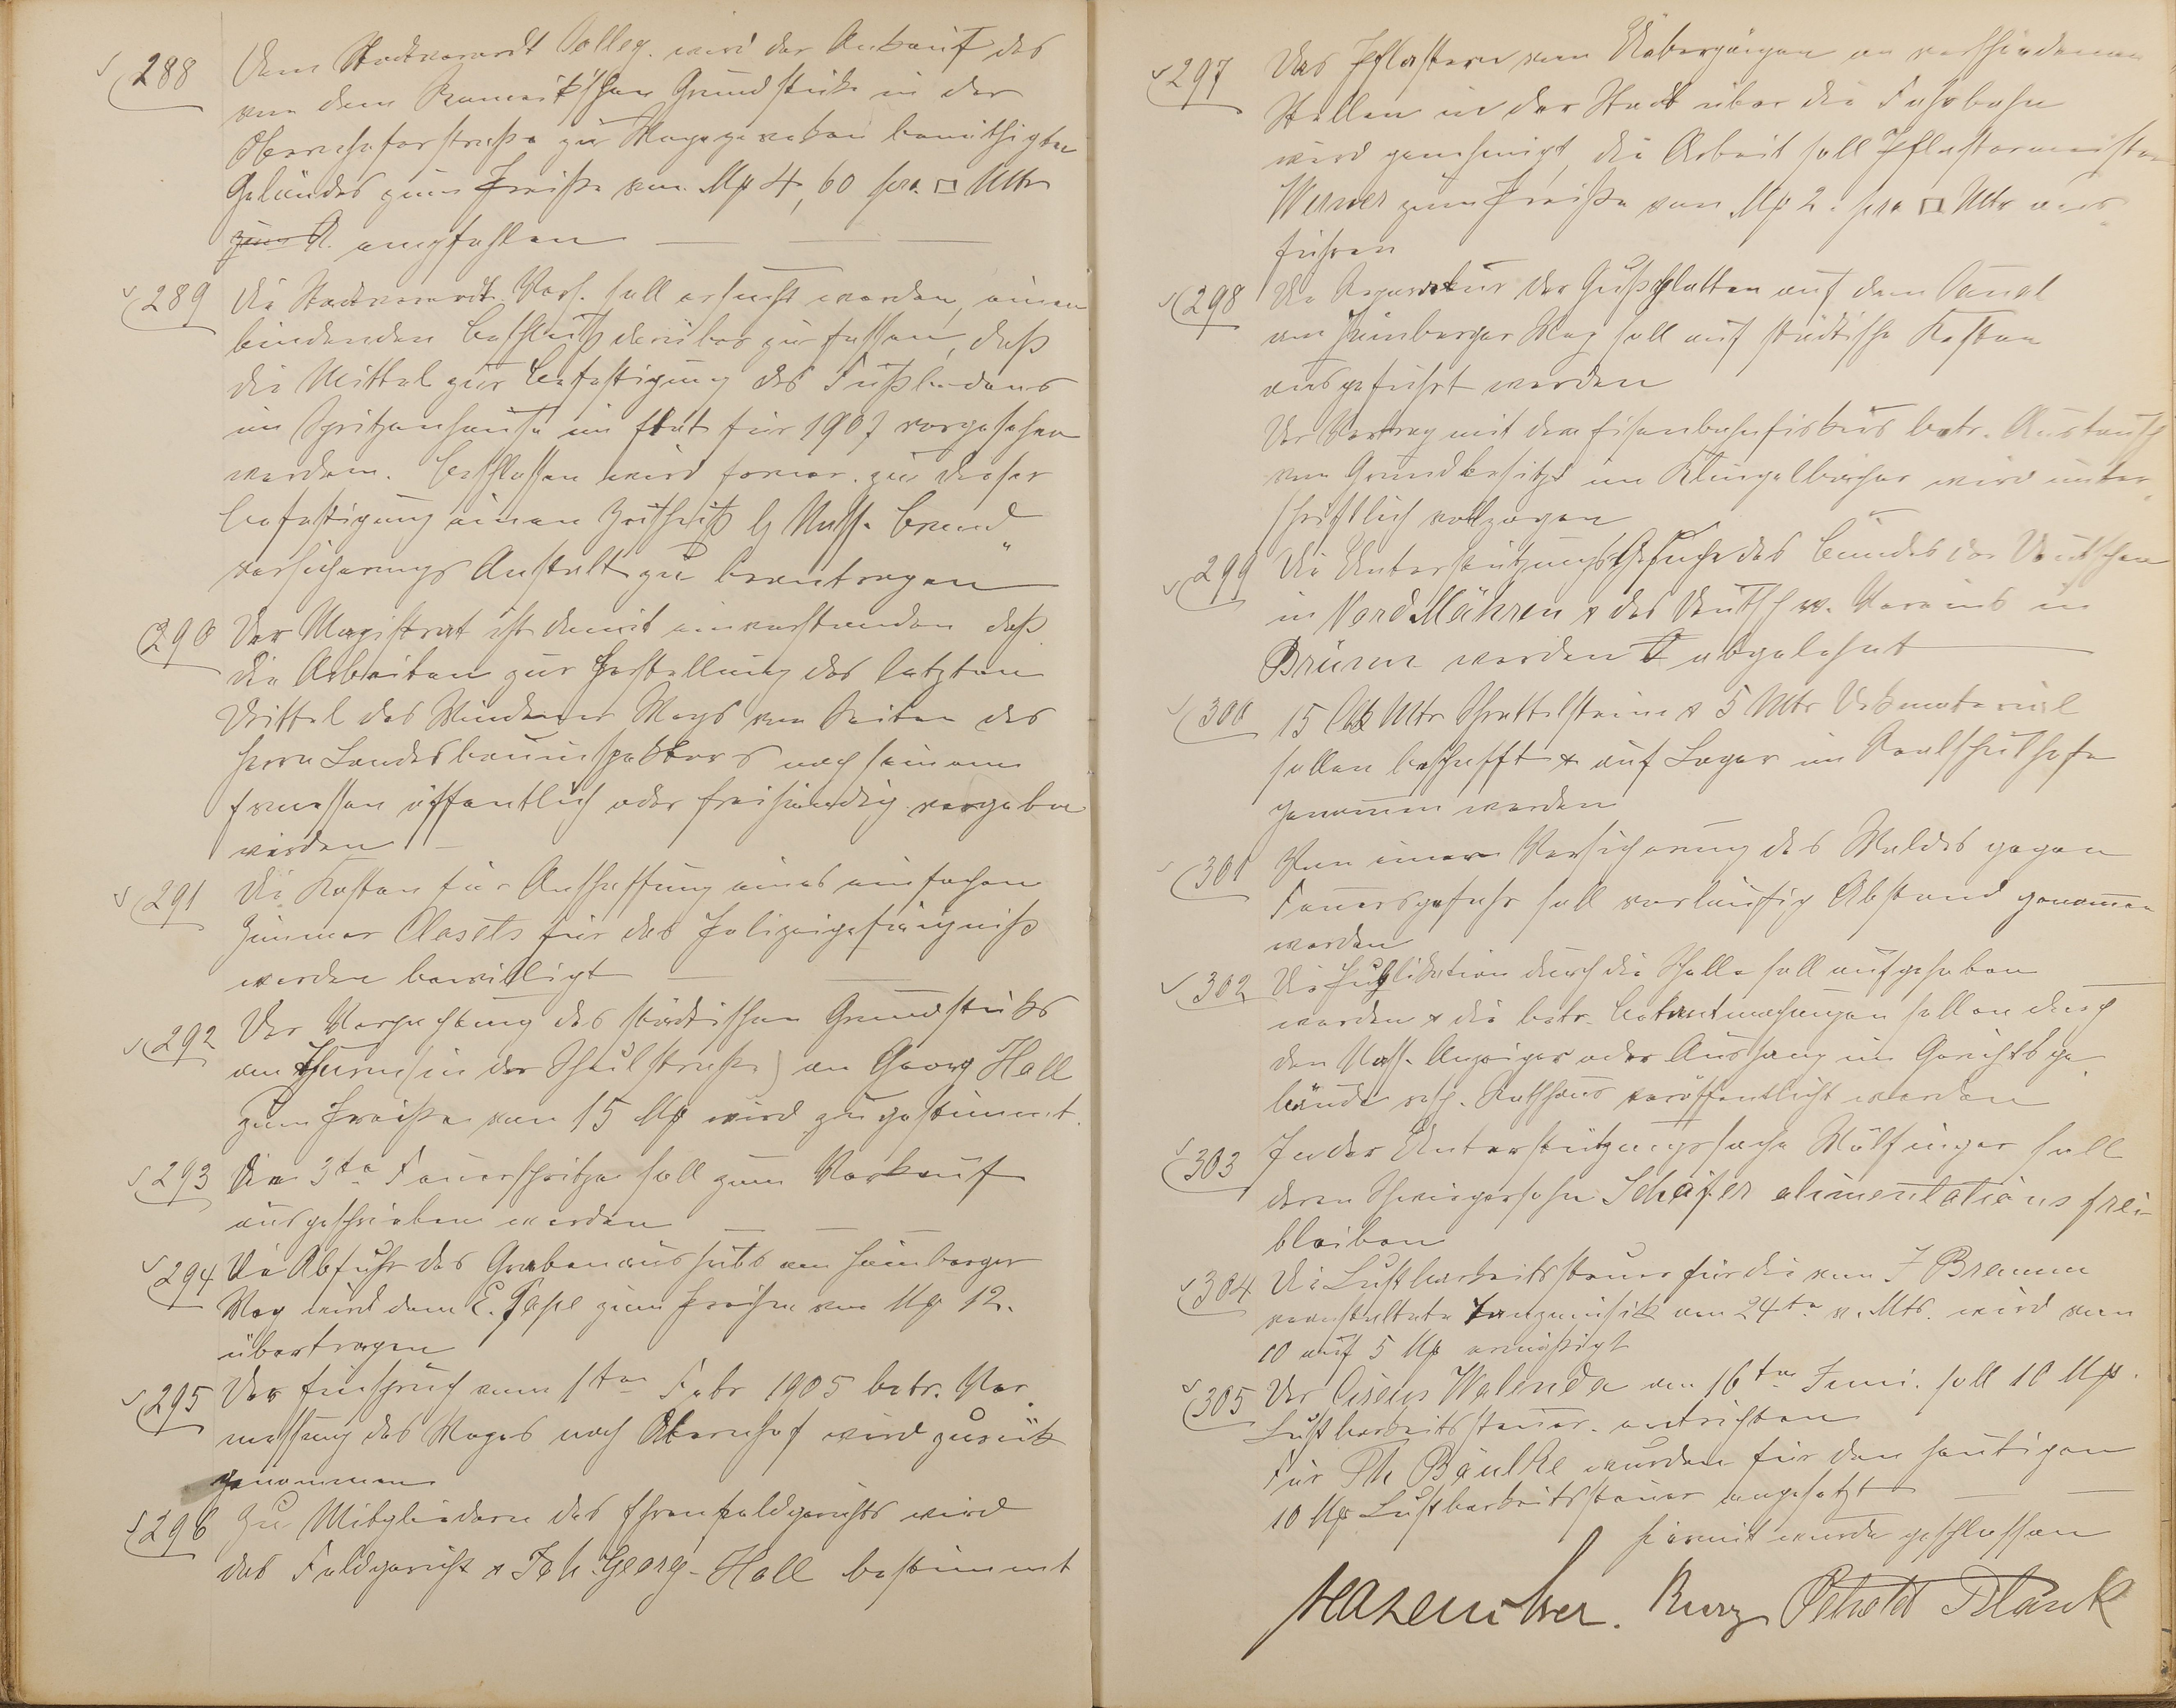 288 Dem Stadtverordt Colleg. wird der Ankauf des
von dem Grundstück in der
Obernhoferstraße zur benöthigten
Geländes zum Preiße von Mk 4,60 pro □ Mtr
zum A. empfohlen
289 Die Stadtverordt. Vers. soll ersucht werden, einen
bindenden Beschluß darüber zu fassen, daß
die Mittel zur Befestigung des Fußbodens
im Spritzenhause im Etat für 1907 vorgesehen
werden. Beschlossen wird ferner zu dieser
Befestigung einen Zuschuß b/ Nass. Brand-
versicherungs Anstalt zu beantragen
290 Der Magistrat ist damit einverstanden daß
die Arbeiten zur Herstellung des letzten
Drittel des Weges von Seiten des
Herrn Landesbauinspektors nach seinem
Ermessen öffentlich oder freihändig vergeben
werden
291 Die Kosten für Anschaffung eines einfachen
Zimmer Closets für das Polizeigefängniß
werden bewilligt
292 Der Verpachtung des städtischen Grundstücks
am Thurm (in der Schulstraße) an Georg Holl
zum Preiße von 15 Mk wird zugestimmt.
293 Die 3te Feuerspritze soll zum Verkauf
ausgeschrieben werden
294 Die Abfuhr des Grabenaushubs am Hömberger
Weg wird dem E. zum Preiße von Mk 12.
übertragen
295 Der Einspruch vom 1ten Febr 1905 betr. Ver-
messung des Weges nach Obernhof wird zurück
genommen
296 Zu Mitgliedern des Ehrenfeldgerichts wird
das Feldgericht & Joh. Georg Holl bestimmt
297 Das Pflastern von Uebergängen an verschiedenen
Stellen in der Stadt über die Fahrbahn
wird genehmigt, die Arbeit soll Pflastermeister
Werner zum Preiße von Mk 2. pro □ Mtr aus-
führen
298 Die Reparatur der Gußplatten auf dem Canal
am Hömberger Weg soll auf städtische Kosten
ausgeführt werden
Der Vertrag mit dem Eisenbahnfiskus betr. Austausch
von Grundbesitz im wird unter-
schriftlich vollzogen
299 Die Unterstützungs Gesuche des Bundes der Deutschen
in Nord Mähren & des Deutsch Vereins in
Brünn werden abgelehnt
300 15 Mtr & 5 Mtr Dekmaterial
sollen beschafft & auf Lager im Realschulhofe
genommen werden
301 Von einer Versicherung des Waldes gegen
Feuersgefahr soll vorläufig Abstand genommen
werden
302 Die Publikation durch die Schelle soll aufgehoben
werden & die betr. Bekantmachungen sollen durch
den Nass. Anzeiger oder Aushang im Gerichtsge-
bäude resp. Rathhaus veröffentlicht werden
303 In der Unterstützungssache Wölfinger soll
deren Schwiegersohn Schäfer alimentationsfrei
bleiben
304 Die Lustbarkeitssteuer für die von J Bremm
veranstaltete Tanzmusik am 24ten v. Mts. wird von
10 auf 5 Mk ermäßigt
305 Der Circus Walenda am 16ten Juni soll 10 Mk
Lustbarkeitssteuer entrichten
Für Th Bäulke wurden für den heutigen
10 Mk Lustbarkeitssteuer angesetzt
Hiermit wurde geschlossen
Hasenclever. Kurz